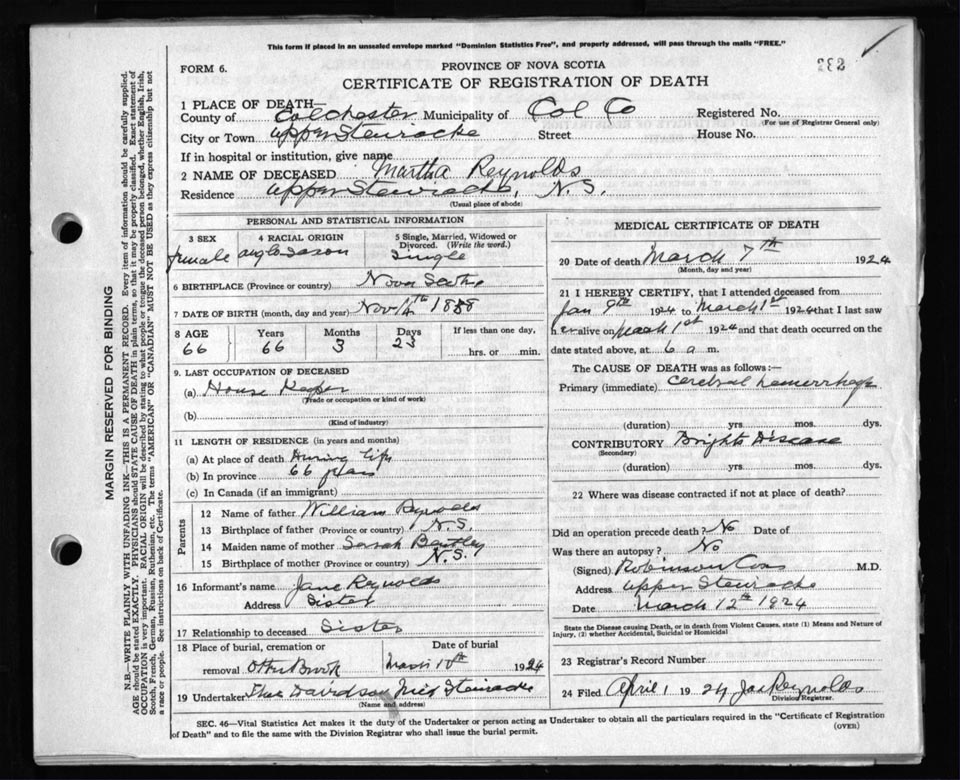 This form if placed in an unsealed envelope marked "Dominion Statistics Free", and properly addressed, will pass through the mails "FREE."
FORM 6.
PROVINCE OF NOVA SCOTIA
CERTIFICATE OF REGISTRATION OF DEATH
1 PLACE OF DEATH—
County of Colchester Municipality of Col Co Registered No.
(For use of Registrar General only)
City or Town Upper Stewiacke Street House No.
If in hospital or institution, give name
2 NAME OF DECEASED Martha Reynolds
Residence Upper Stewiacke, N.S.
(Usual place of abode)
PERSONAL AND STATISTICAL INFORMATION
3 SEX 4 RACIAL ORIGIN 5 Single, Married, Widowed or Divorced. (Write the word.)
female anglo saxon Single
6 BIRTHPLACE (Province or country) Nova Scotia
7 DATE OF BIRTH (month, day and year) Nov 14th
8 AGE Years Months Days If less than one day,
66 66 3 23 hrs. or min.
9. LAST OCCUPATION OF DECEASED
(a) House Keeper
(Trade or occupation or kind of work)
(b)
(Kind of industry)
11 LENGTH OF RESIDENCE (in years and months)
(a) At place of death During life
(b) In province 66 years
(c) In Canada (if an immigrant)
Parents
12 Name of father William Reynolds
13 Birthplace of father (Province or country) N.S.
14 Maiden name of mother Sarah Bentley
15 Birthplace of mother (Province or country) N.S.
16 Informant's name Jane Reynolds
Address Sister
17 Relationship to deceased Sister
18 Place of burial, cremation or removal Otter Brook
Date of burial March 10th 1924
19 Undertaker Davidson Mid Stewiacke
(Name and address)
MEDICAL CERTIFICATE OF DEATH
20 Date of death March 7th 1924
(Month, day and year)
21 I HEREBY CERTIFY, that I attended deceased from
Jan 9th 1924 to March 1st 1924 that I last saw
h er alive on March 1st 1924 and that death occurred on the
date stated above, at 6 a m.
The CAUSE OF DEATH was as follows:—
Primary (immediate) Cerebral hemorrhage
(duration) yrs mos. dys.
CONTRIBUTORY Brights Disease
(Secondary)
(duration) yrs. mos. dys.
22 Where was disease contracted if not at place of death?
Did an operation precede death? No Date of
Was there an autopsy? No
(Signed) Robinson Cox M.D.
Address Upper Stewiacke
Date March 12th 1924
State the Disease causing Death, or in death from Violent Causes, state (1) Means and Nature of Injury, (2) whether Accidental, Suicidal or Homicidal
23 Registrar's Record Number
24 Filed April 1 1924 Jas Reynolds
Division Registrar.
SEC. 46—Vital Statistics Act makes it the duty of the Undertaker or person acting as Undertaker to obtain all the particulars required in the "Certificate of Registration
of Death" and to file the same with the Division Registrar who shall issue the burial permit.
(OVER)
MARGIN RESERVED FOR BINDING
N.B.—WRITE PLAINLY WITH UNFADING INK—THIS IS A PERMANENT RECORD. Every item of information should be carefully supplied.
AGE should be stated EXACTLY. PHYSICIANS should STATE CAUSE OF DEATH in plain terms, so that it may be properly classified. Exact statement of
OCCUPATION is very important. RACIAL ORIGIN will be described by stating to what people or tongue the deceased person belonged, whether English, Irish,
Scotch, French, German, Russian, Ruthenian, etc. The terms "AMERICAN" OR "CANADIAN" MUST NOT BE USED as they express citizenship but not
a race or people. See instructions on back of Certificate.